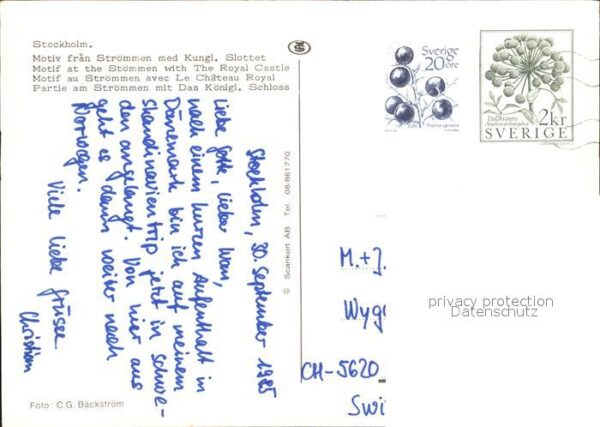 Stockholm.
Motiv från Strömmen med Kungl. Slottet
Motif at the Stömmen with The Royal Castle
Motif au Strömmen avec Le Château Royal
Partie am Strömmen mit Das Königl. Schloss
Sverige
20 öre
Slån Prunus spinosa
2kr
Fjällkvanne
Angelica archangelica
SVERIGE
© Scankort AB Tel. 08-861770
Stockholm, 30. September 1985
Liebe Gotte, lieber
nach einem kurzen Aufenthalt in
Dänemark bin ich auf meinem
Skandinavientrip jetzt in Schwe-
den angelangt. Von hier aus
geht es dann weiter nach
Norwegen.
Viele liebe Grüsse
Christian
M.+J.
Wyg
CH-5620
Swi
privacy protection
Datenschutz
Foto: C.G. Bäckström